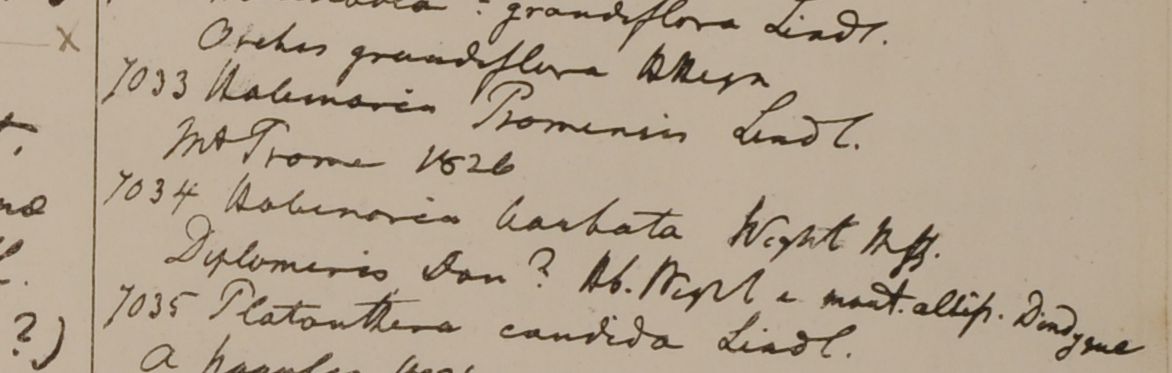 grandiflora Lindl.
x
Orchis grandiflora
7033 Habenaria Promensis Lindl.
Mt Prome 1826
7034 Habenaria barbata Wight Mss.
Diplomeris Don? Hb. Wight e mont. altiss. Dindygue
7035 Platanthera candida Lindl.
?)
a